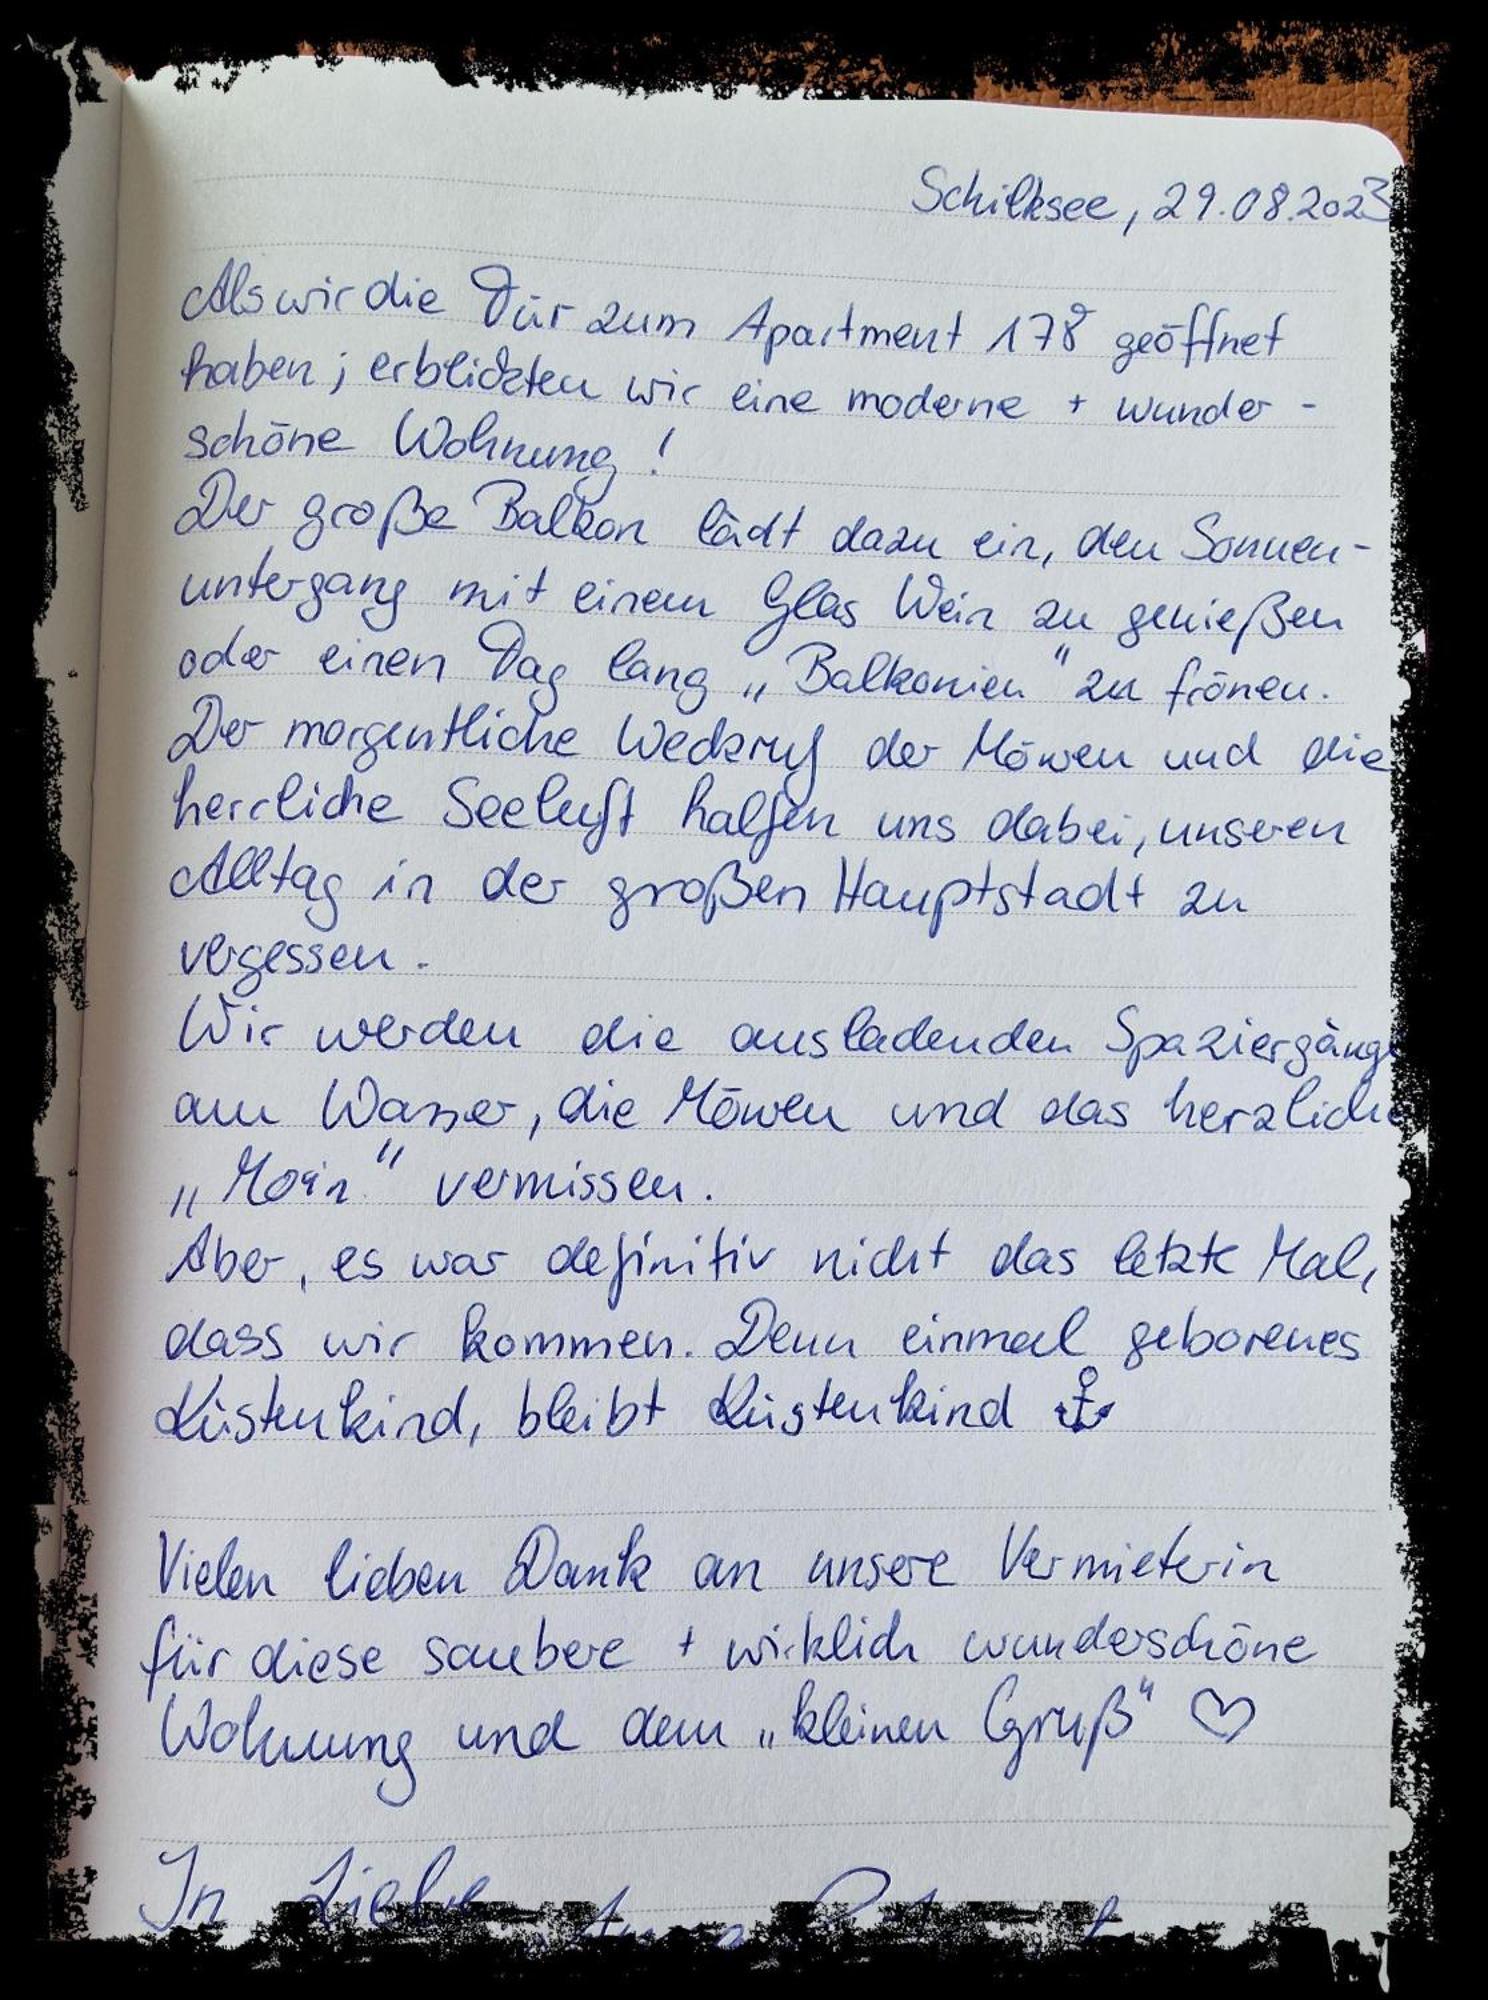 Schilksee, 29.08.2023
Als wir die Tür zum Apartment 178 geöffnet
haben; erblickten wir eine moderne + wunder-
schöne Wohnung!
Der große Balkon lädt dazu ein, den Sonnen-
untergang mit einem Glas Wein zu genießen
oder einen Tag lang „Balkonien" zu frönen.
Der morgentliche Weckruf der Möwen und die
herrliche Seeluft halfen uns dabei, unseren
Alltag in der großen Hauptstadt zu
vergessen.
Wir werden die ausladenden Spaziergänge
am Wasser, die Möwen und das herzliche
„Moin" vermissen.
Aber, es war definitiv nicht das letzte Mal,
dass wir kommen. Denn einmal geborenes
Küstenkind, bleibt Küstenkind ⚓
Vielen lieben Dank an unsere Vermieterin
für diese saubere + wirklich wunderschöne
Wohnung und dem „kleinen Gruß" ♡
In Liebe